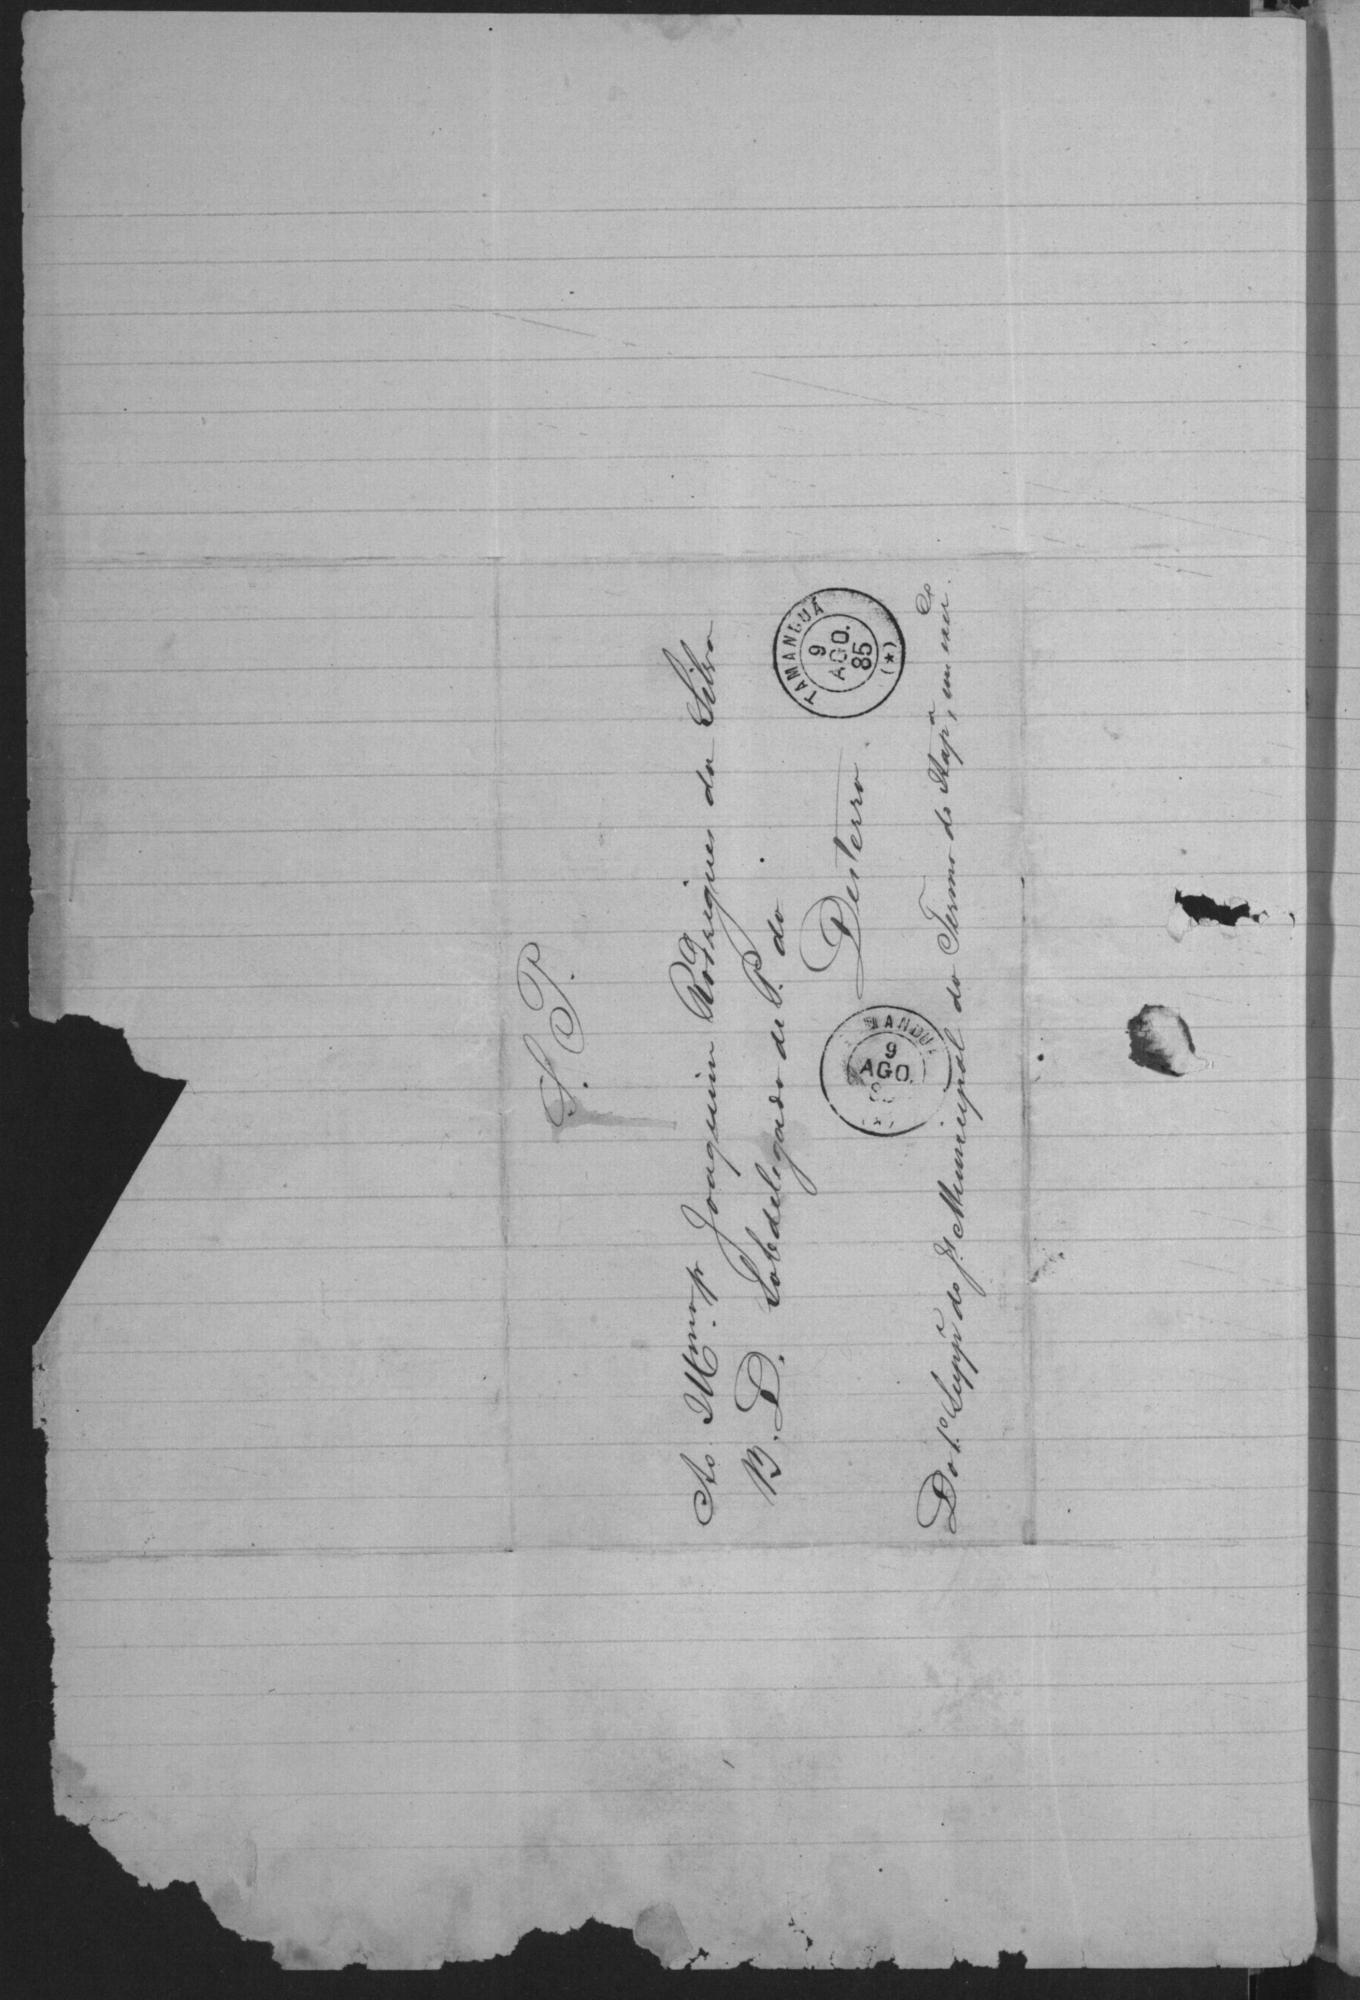 S. P.
Ao Illmo. Sr. Joaquim Rodrigues da Silva
M. D. Subdelegado de P. do
Desterro.
TAMANDUÁ
9
AGO.
85
(*)
TAMANDUÁ
9
AGO.
Do 1.º Suppe do Jz Municipal do Termo de Itapa, em exer.co